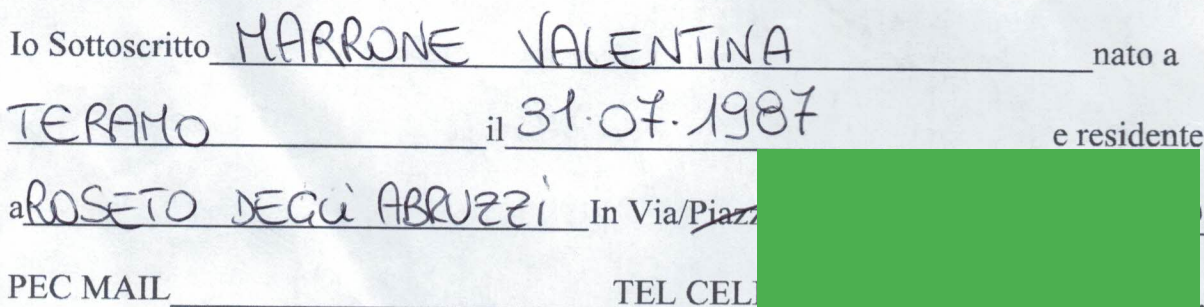 Io Sottoscritto MARRONE VALENTINA nato a
TERAMO il 31.07.1987 e residente
a ROSETO DEGLI ABRUZZI In Via/Piazz
PEC MAIL TEL CEL